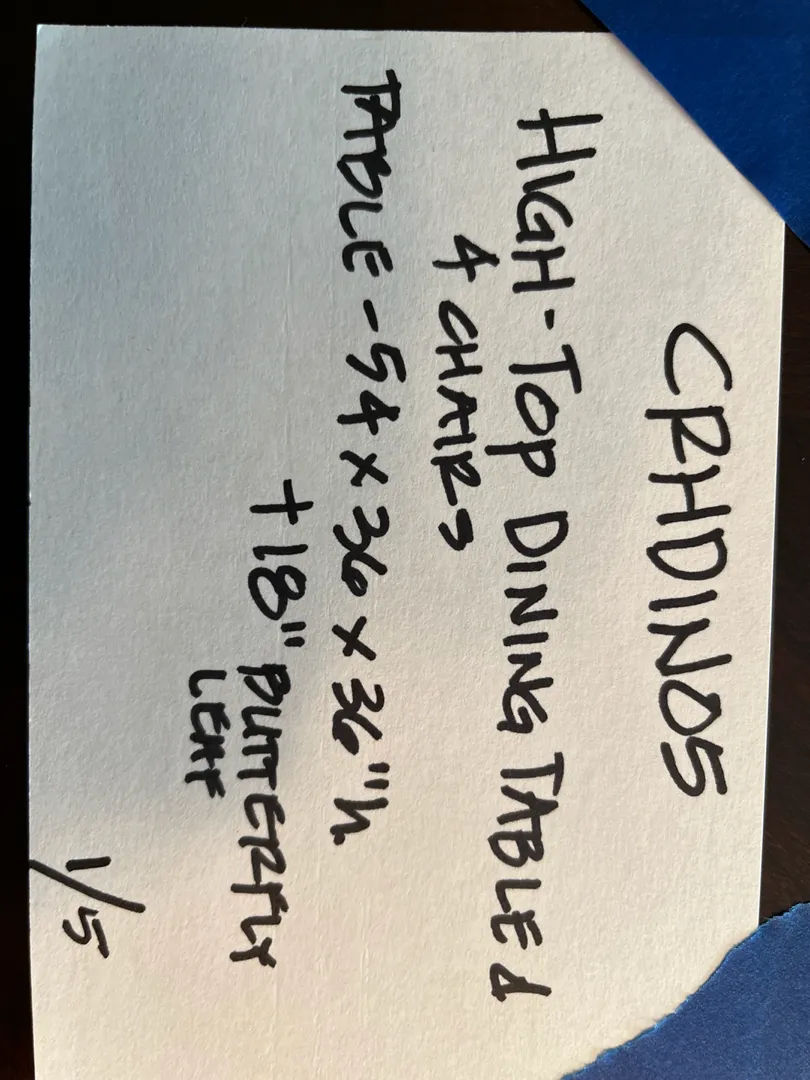 CRHDIN05
HIGH-TOP DINING TABLE &
4 CHAIRS
TABLE - 54 x 36 x 36"h.
+18" BUTTERFLY
LEAF
1/5